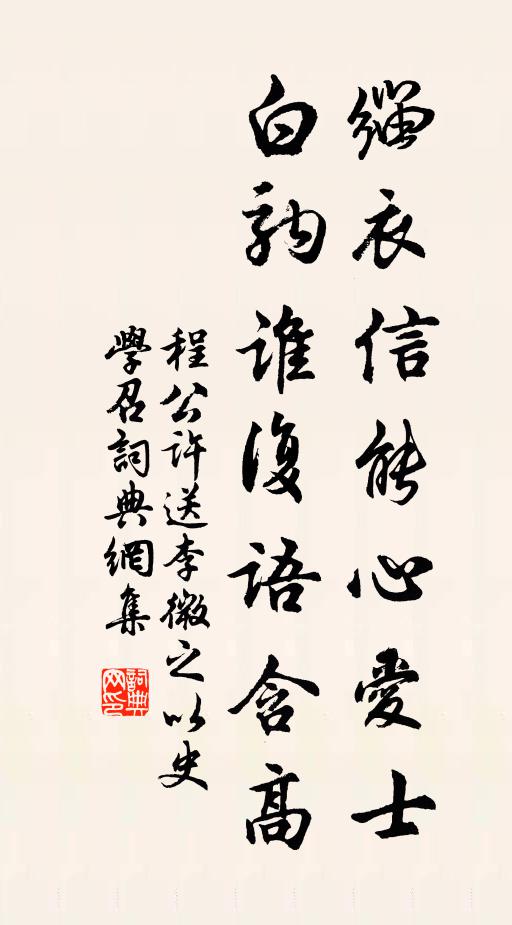 緇衣信能心愛士
白鞠誰復語含高
程公許送李微之以史
學召詞典網集
詞典網印